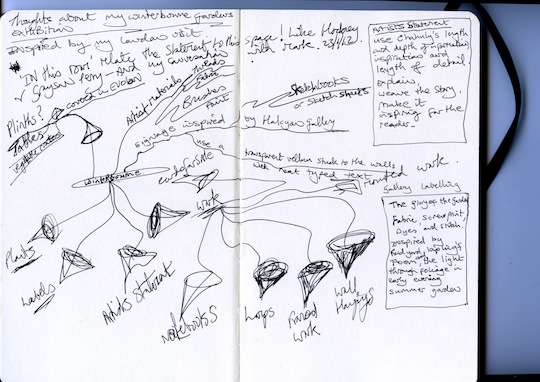 Thoughts about my winterbourne gardens
exhibition
Inspired by my London visit.
'In this room' relate the Statement to the space! Like Hockney
& Grayson Perry - And my conversation with Mark. 23/4/12
Plinths?
covered in
Tables
Artist materials
threads
Fabric
Brushes
Paint
Sketchbooks
or sketch sheets
signage inspired by Halcyon gallery
use a transparent vellum stuck to the walls
with neat typed text
Winterbourne
work
Mounted work.
Gallery labelling
Plants
Labels
Artists Statement
Notebooks
Loops
Framed
work
Wall
Hangings
Artists Statement
use Chihuly's length
and depth of inspiration
inspirations and
length of detail
explain,
weave the story,
make it
inspiring for the
reader.
The glory of the garden
Fabric screenprint,
Dyes and stitch.
Inspired by
Rudyard Kipling's
poem, the light
through foliage in
early evening
summer garden